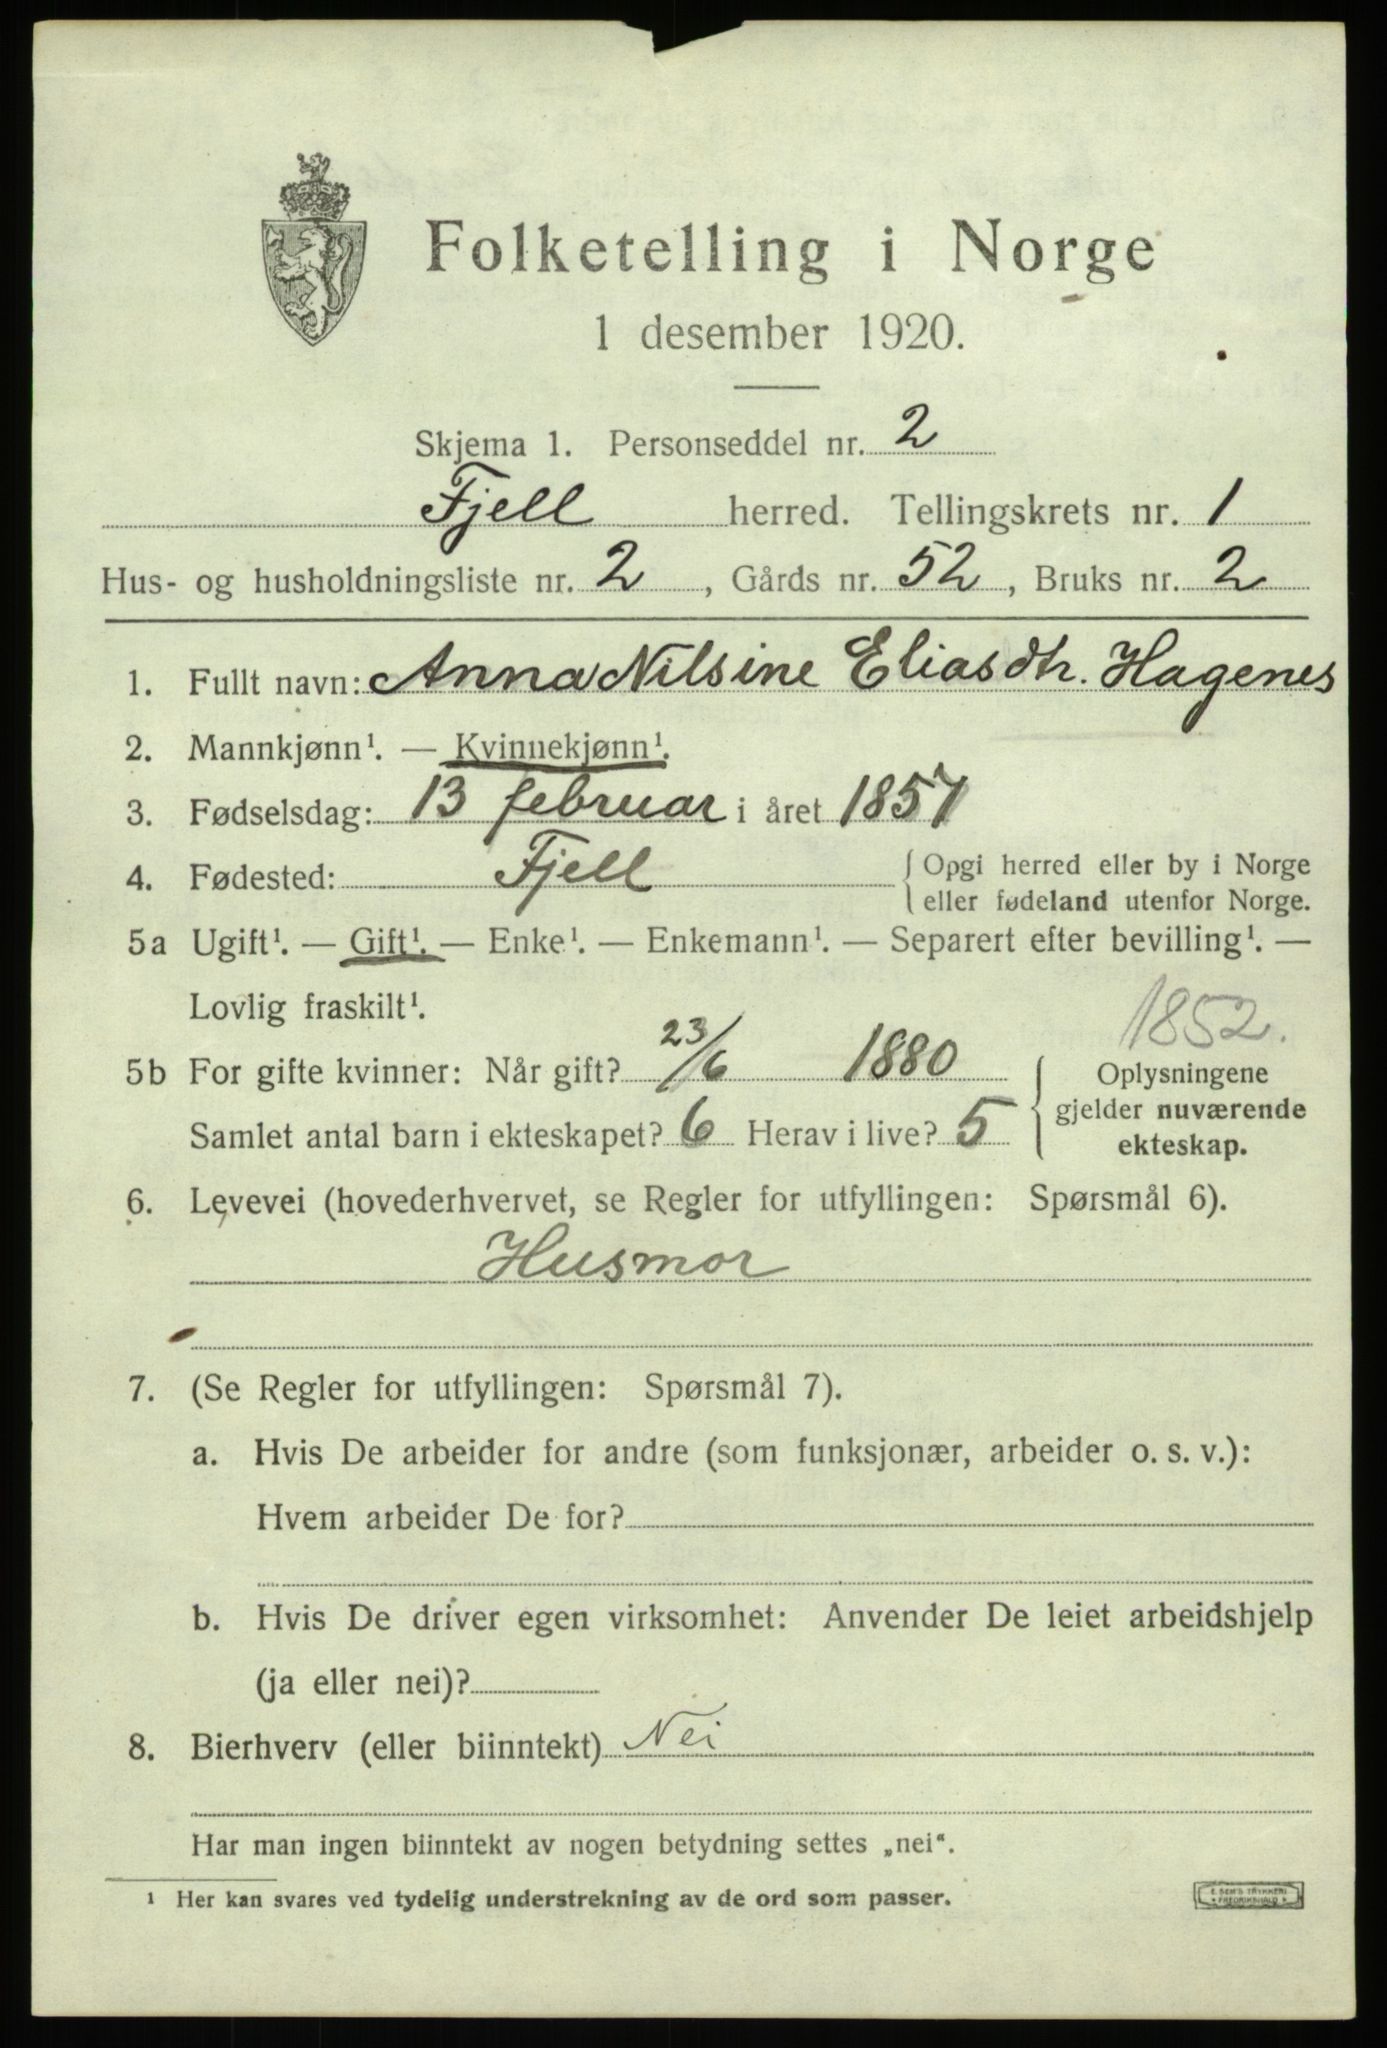 Folketelling i Norge
1 desember 1920.
Skjema 1. Personseddel nr. 2
Fjell herred. Tellingskrets nr. 1
Hus- og husholdningsliste nr. 2, Gårds nr. 52, Bruks nr. 2
1. Fullt navn: Anna Nilsine Eliasdtr. Hagenes
2. Mannkjønn¹. — Kvinnekjønn¹.
3. Fødselsdag: 13 februar i året 1857
4. Fødested: Fjell { Opgi herred eller by i Norge
eller fødeland utenfor Norge.
5a Ugift¹. — Gift¹. — Enke¹. — Enkemann¹. — Separert efter bevilling¹. —
Lovlig fraskilt¹.
1852.
5b For gifte kvinner: Når gift? 23/6 1880
Samlet antal barn i ekteskapet? 6 Herav i live? 5
Oplysningene
gjelder nuværende
ekteskap.
6. Levevei (hovederhvervet, se Regler for utfyllingen: Spørsmål 6).
Husmor
7. (Se Regler for utfyllingen: Spørsmål 7).
a. Hvis De arbeider for andre (som funksjonær, arbeider o. s. v.):
Hvem arbeider De for?
b. Hvis De driver egen virksomhet: Anvender De leiet arbeidshjelp
(ja eller nei)?
8. Bierhverv (eller biinntekt) Nei
Har man ingen biinntekt av nogen betydning settes „nei“.
¹ Her kan svares ved tydelig understrekning av de ord som passer.
E. SEM'S TRYKKERI
FREDRIKSHALD